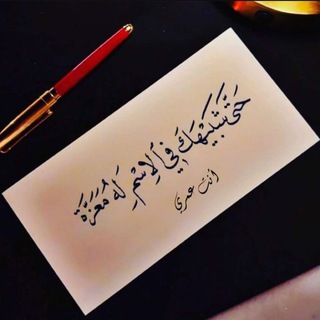 حَتّى شَبيهَكَ فِي الاِسْمِ لَهُ مَعَزَّة
أنت عمري